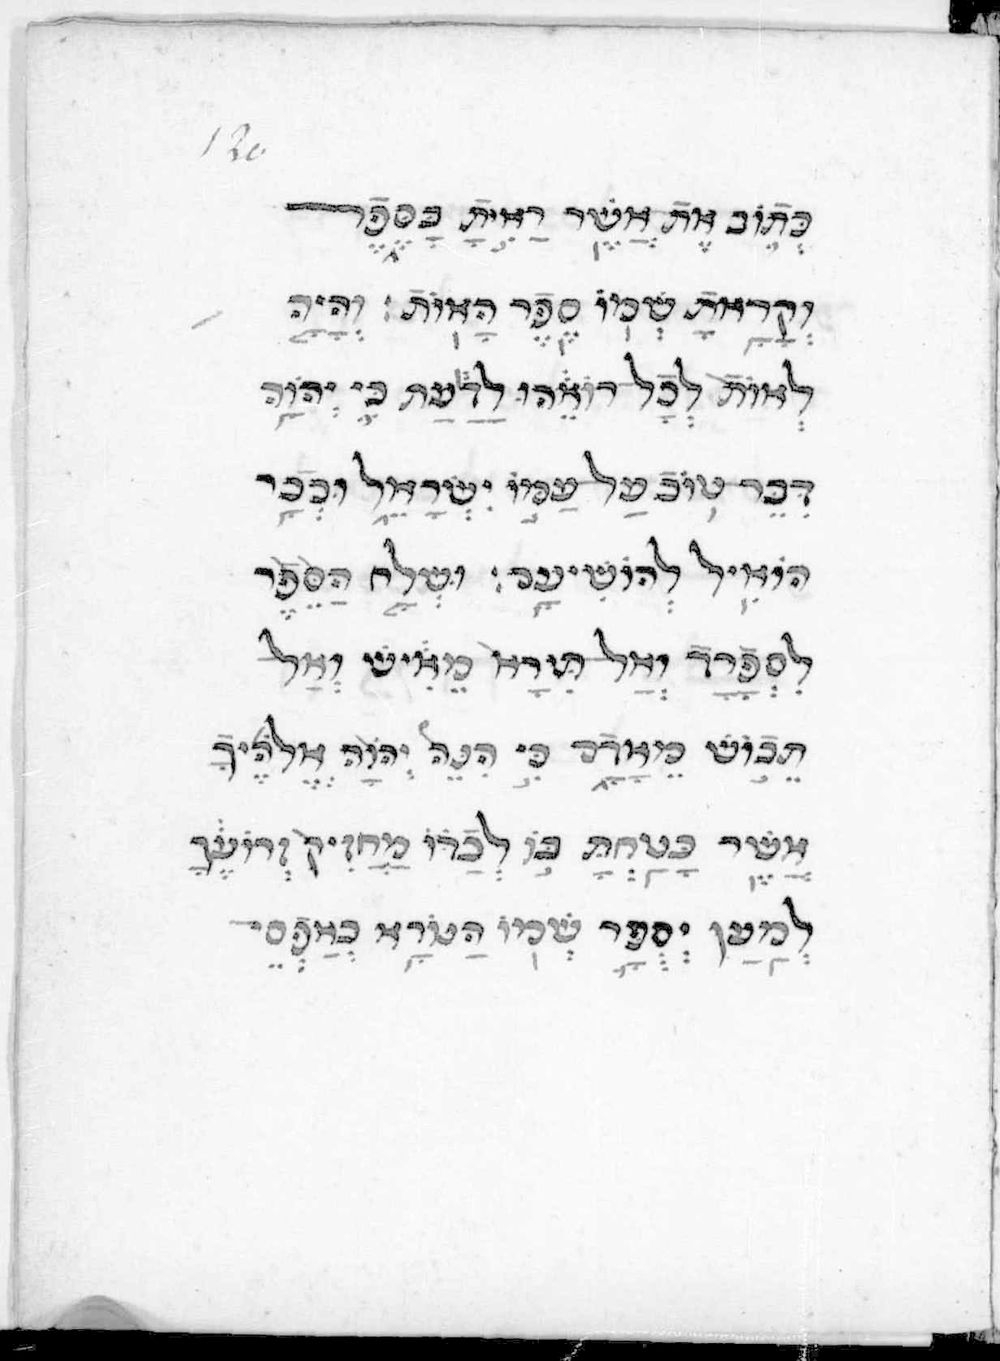 120
כְּתוֹב אֶת אֲשֶׁר רַאִיתָ בָּסֶפֶר
וְקָרָאתָ שְׁמוֹ סֶפֶר הָאוֹת׃ וְהָיָה
לְאוֹת לְכָל רוֹאֵהוּ לָדַעַת כִּי יְהוָֹה
דִבֵּר טוֹב עַל עַמּוֹ יִשְׂרָאֵל וּכְבָר
הוֹאִיל לְהוֹשִׁיעָם׃ וּשְׁלָח הַסֵפֶר
לִסְפָרָד וְאַל תִּירָא מֵאִישׁ וְאַל
תֵבוֹשׁ מֵאָדָם כִּי הִנֵּה יְהוָֹה אֱלֹהֶיךָ
אֲשֶׁר בָּטַחְתָּ בּוֹ לְבַדּוֹ מַחֲזִיק זְרוֹעֶךָ
לְמַעַן יְסְפָּר שְׁמוֹ הַנוֹרָא בְּאַפְסֵי